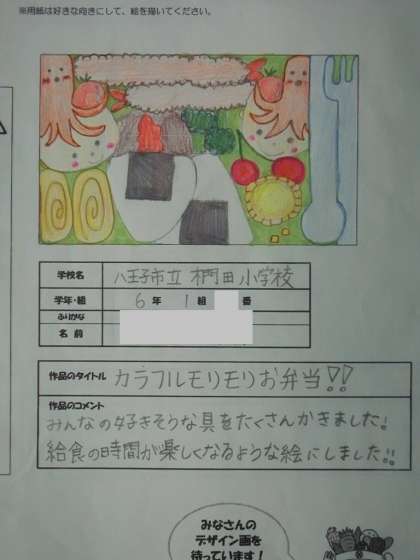 ※用紙は好きな向きにして、絵を描いてください。
学校名 八王子市立 椚田 小学校
学年・組 6 年 1 組 番
ふりがな
名前
作品のタイトル カラフルモリモリお弁当!!
作品のコメント
みんなの好きそうな具をたくさんかきました!
給食の時間が楽しくなるような絵にしました!!
みなさんの
デザイン画を
待っています!